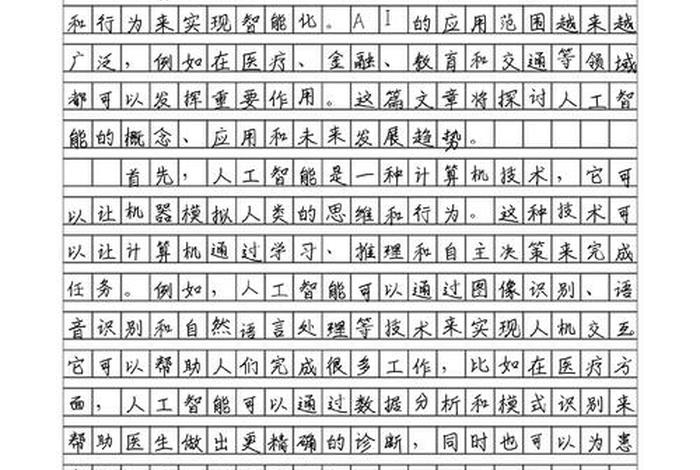 和行为来实现智能化。AI的应用范围越来越
广泛，例如在医疗、金融、教育和交通等领域
都可以发挥重要作用。这篇文章将探讨人工智
能的概念、应用和未来发展趋势。
首先，人工智能是一种计算机技术，它可
以让机器模拟人类的思维和行为。这种技术可
以让计算机通过学习、推理和自主决策来完成
任务。例如，人工智能可以通过图像识别、语
音识别和自然语言处理等技术来实现人机交互
它可以帮助人们完成很多工作，比如在医疗方
面，人工智能可以通过数据分析和模式识别来
帮助医生做出更精确的诊断，同时也可以为患